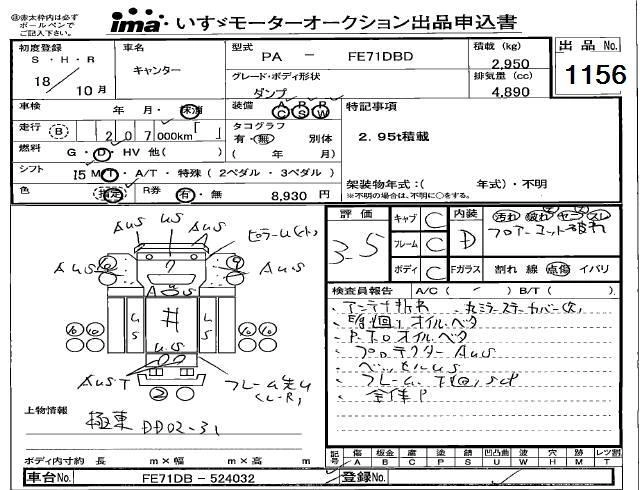 ◎赤太枠内は必ず
ボールペンで
ご記入下さい。
ima いすゞモーターオークション出品申込書
初度登録
S・H・R
18 10月
車名
キャンター
型式
PA － FE71DBD
積載(kg)
2,950
出品No.
1156
グレード・ボディ形状
ダンプ
排気量(cc)
4,890
車検 年 月・抹消
装備 A P R
C S W
特記事項
2.95t積載
走行 B 2 0 7 000km「 」
タコグラフ
有・無 別体
( 年 月)
燃料 G・D・HV 他( )
シフト I5 MT・A/T・特殊(2ペダル・3ペダル)
架装物年式:( 年式)・不明
※不明の場合は、不明に○をする。
色 指定 R券 有・無 8,930 円
AuS
uS
AuS
AuS
AuS
評価
3-5
キャブ C
フレーム C
ボディ C
内装 D
汚れ 破れ コゲ スレ
フロアーマット破れ
Fガラス 割れ 線 点傷 イバリ
検査員報告 A/C( )B/T( )
、アンテナ折れ
オイルベタ
P.T.Oオイルベタ
、プロテクターAuS
、ベッセルuS
、フレーム、下回りSCP
、全体P
A uS
uS
uS
井
uS
AuST
2
フレーム先u
(L-R)
上物情報
極東 DD02-31
ボディ内寸約 長 m×幅 m×高 m
記号 傷 板金 腐 塗 錆 凹凸曲 波 穴 跡 レツ割
A B C P S U W H M T
車台No. FE71DB － 524032
登録No.